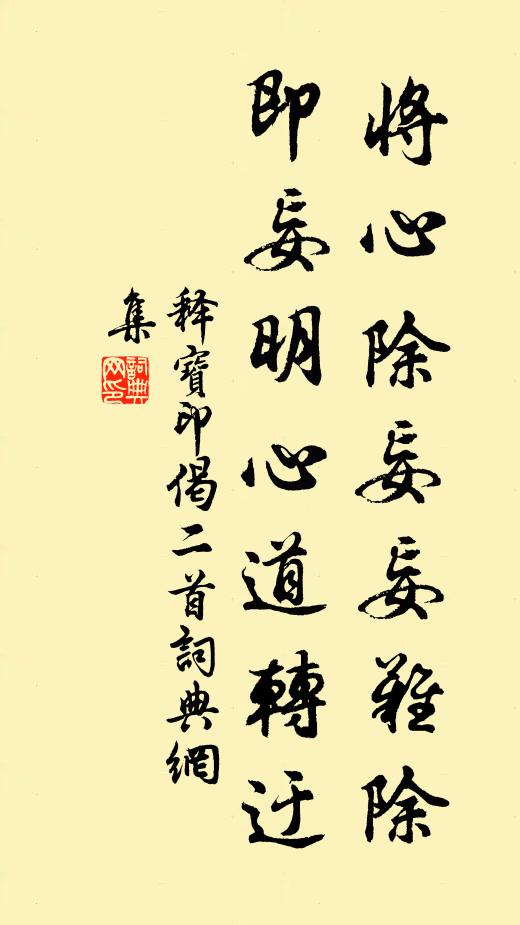 將心除妄妄難除
即妄明心道轉迂
释寶印偈二首詞典網
集
詞典
网印